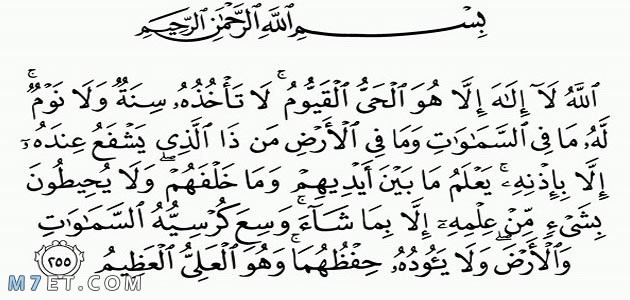 بِسْمِ ٱللَّهِ ٱلرَّحْمَٰنِ ٱلرَّحِيمِ
ٱللَّهُ لَآ إِلَٰهَ إِلَّا هُوَ ٱلْحَىُّ ٱلْقَيُّومُ ۚ لَا تَأْخُذُهُۥ سِنَةٌ وَلَا نَوْمٌ ۚ
لَّهُۥ مَا فِى ٱلسَّمَٰوَٰتِ وَمَا فِى ٱلْأَرْضِ مَن ذَا ٱلَّذِى يَشْفَعُ عِندَهُۥٓ
إِلَّا بِإِذْنِهِۦ ۚ يَعْلَمُ مَا بَيْنَ أَيْدِيهِمْ وَمَا خَلْفَهُمْ ۖ وَلَا يُحِيطُونَ
بِشَىْءٍ مِّنْ عِلْمِهِۦٓ إِلَّا بِمَا شَآءَ ۚ وَسِعَ كُرْسِيُّهُ ٱلسَّمَٰوَٰتِ
وَٱلْأَرْضَ ۖ وَلَا يَـُٔودُهُۥ حِفْظُهُمَا ۚ وَهُوَ ٱلْعَلِىُّ ٱلْعَظِيمُ ٢٥٥
M7ET.COM